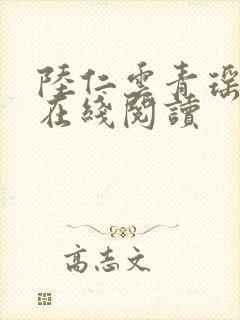 陸仁雲青瑶
在綫閱讀
高志文